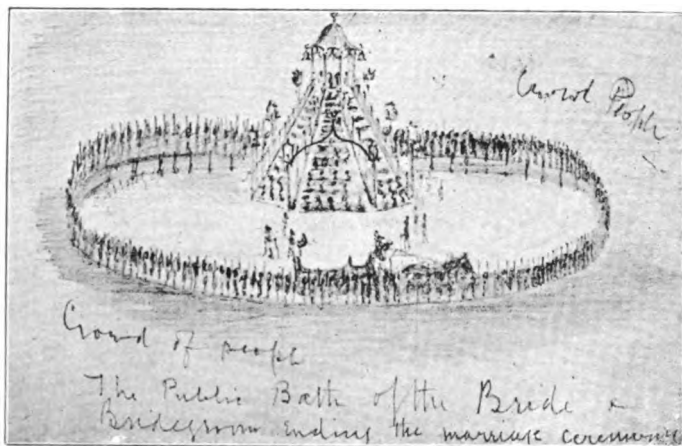 Crowd People
Crowd of people
The Public Bath of the Bride &
Bridegroom ending the marriage ceremony